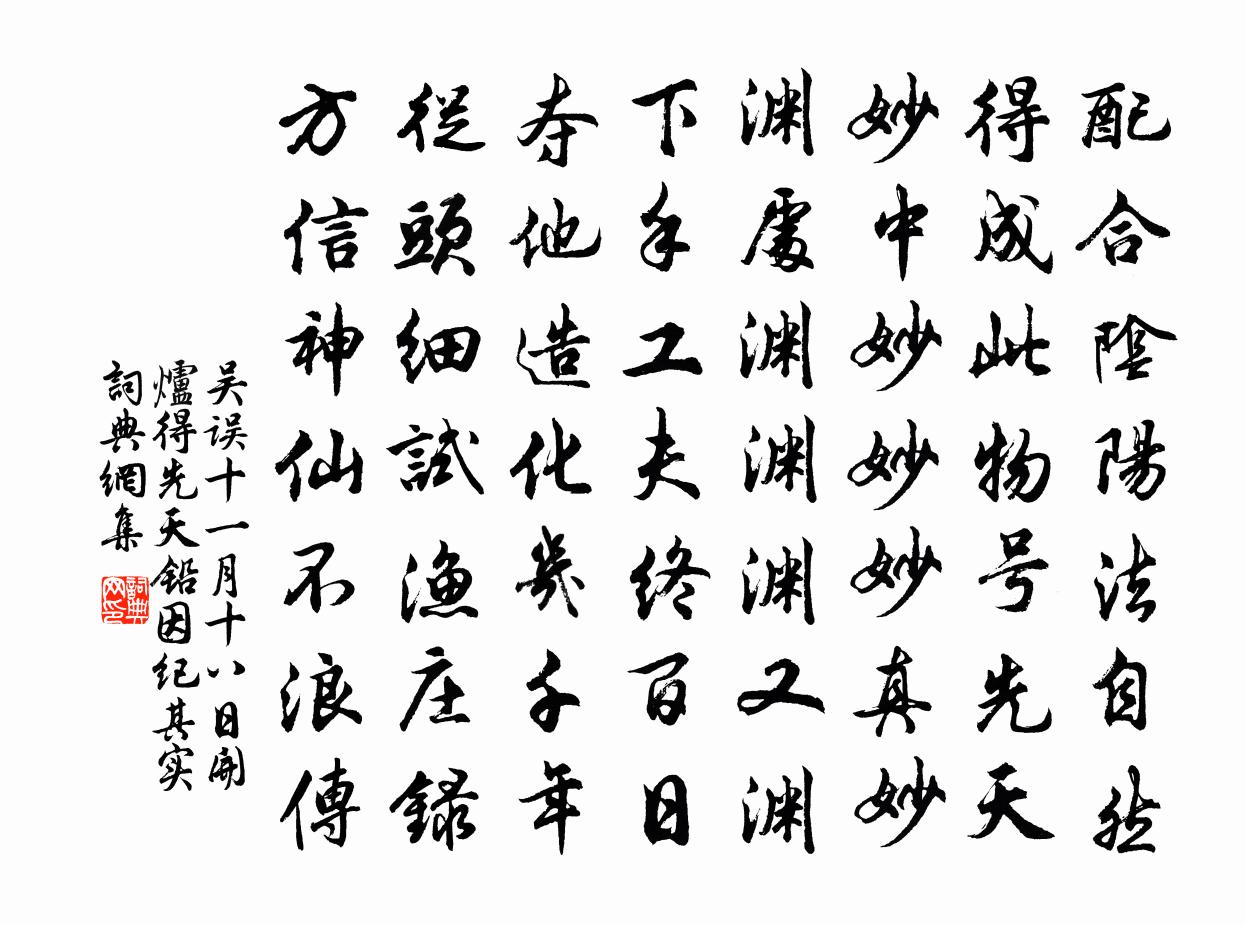 配合陰陽法自然
得成此物号先天
妙中妙妙妙真妙
渊處渊渊渊又渊
下手工夫终百日
夺他造化幾千年
從頭細試漁庄錄
方信神仙不浪傳
吴误十一月十八日開
爐得先天鉛因纪其实
詞典網集
詞典
网印